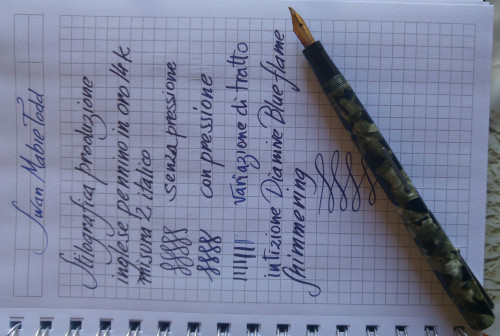 Swan Mabie Todd
Stilografica produzione
inglese pennino in oro 14 k
misura 2 italico
senza pressione
con pressione
Variazione di tratto
intizione Diamine Blue flame
Shimmering